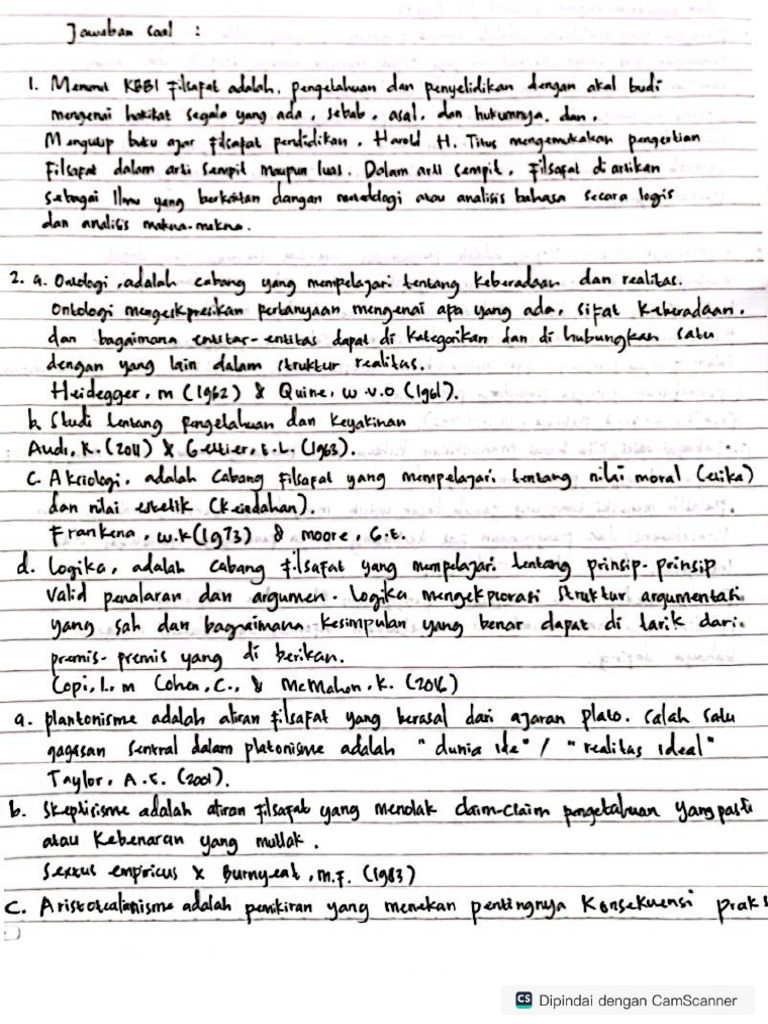 Jawaban soal :
1. Menurut KBBI filsafat adalah, pengetahuan dan penyelidikan dengan akal budi
mengenai hakikat segala yang ada, sebab, asal, dan hukumnya. dan,
Mengutip buku ajar filsafat pendidikan, Harold H. Titus mengemukakan pengertian
Filsafat dalam arti sempit maupun luas. Dalam arti sempit, filsafat di artikan
sebagai Ilmu yang berkaitan dangan metodologi atau analisis bahasa secara logis
dan analisis makna-makna.
2. a. Ontologi, adalah cabang yang mempelajari tentang keberadaan dan realitas.
Ontologi mengekspresikan pertanyaan mengenai apa yang ada, sifat keberadaan,
dan bagaimana entitas-entitas dapat di kategorikan dan di hubungkan satu
dengan yang lain dalam struktur realitas.
Heidegger, m (1962) & Quine, w.v.o (1961).
b. Studi tentang pengetahuan dan keyakinan
Audi, R. (2011) & Gettier, E.L. (1963).
C. Aksiologi, adalah cabang filsafat yang mempelajari tentang nilai moral (etika)
dan nilai estetik (keindahan).
Frankena, w.k (1973) & moore, G.E.
d. Logika, adalah cabang filsafat yang mempelajari tentang prinsip-prinsip
valid penalaran dan argumen. Logika mengeksplorasi struktur argumentasi
yang sah dan bagaimana kesimpulan yang benar dapat di tarik dari
premis-premis yang di berikan.
Copi, I. m Cohen, C., & McMahon, K. (2016)
a. plantonisme adalah aliran filsafat yang berasal dari ajaran plato. salah satu
gagasan sentral dalam platonisme adalah "dunia ide" / "realitas ideal"
Taylor, A.E. (2001).
b. Skeptisisme adalah aliran filsafat yang menolak claim-claim pengetahuan yang pasti
atau kebenaran yang mutlak.
Sextus empiricus & Burnyeat, M.F. (1983)
C. adalah pemikiran yang menekan pentingnya Konsekuensi praks
CS Dipindai dengan CamScanner